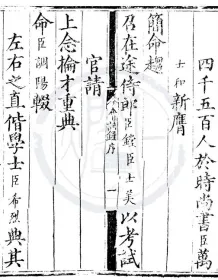 四千五百人於時尚書臣萬
士和新膺
簡命趨
召在途侍郎臣鏜臣士美以考試
試錄序 一
官請
上念掄才重典
命臣調陽輟
左右之直偕學士臣希烈典其